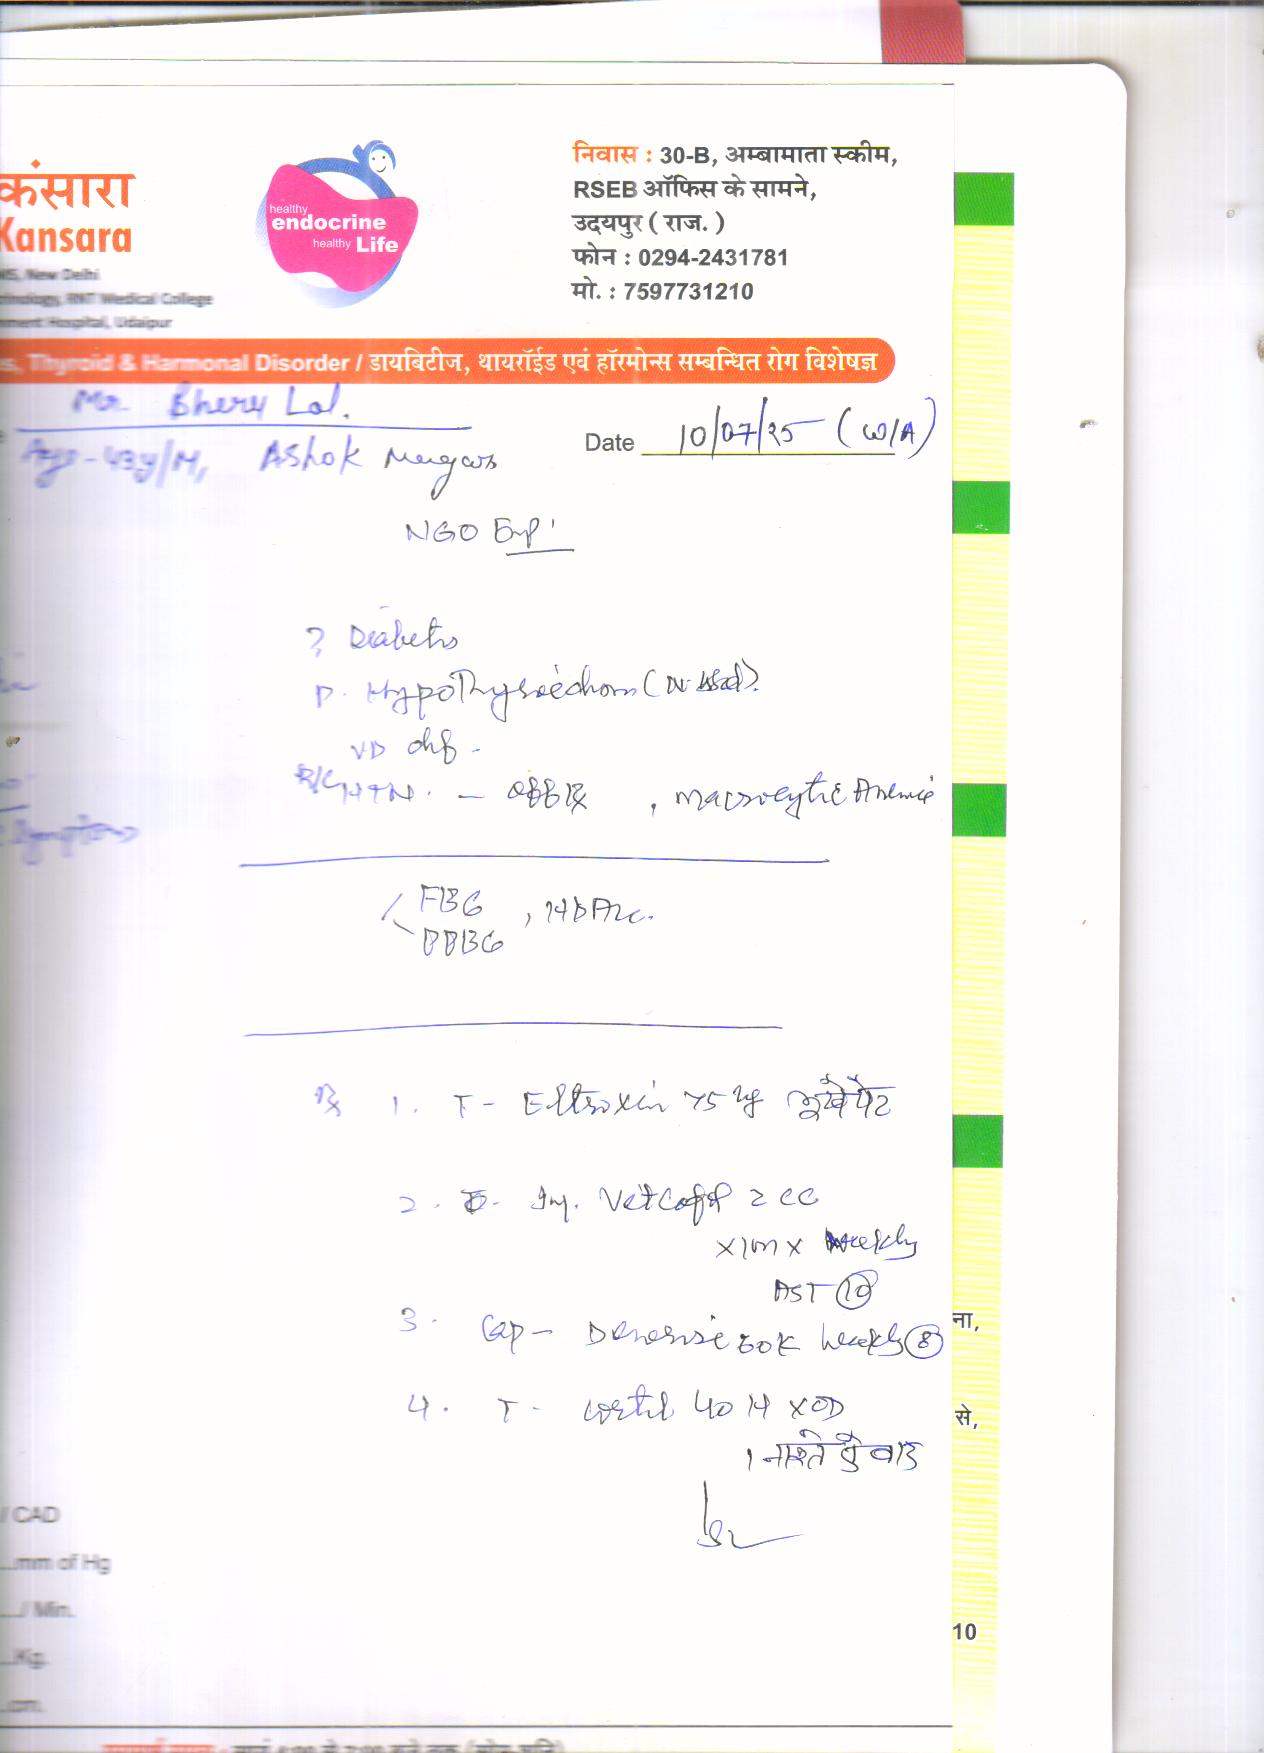 कंसारा
Kansara
healthy
endocrine
healthy Life
निवास : 30-B, अम्बामाता स्कीम,
RSEB ऑफिस के सामने,
उदयपुर ( राज. )
फोन : 0294-2431781
मो. : 7597731210
MS, New Delhi
RNT Medical College
Hospital, Udaipur
Thyroid & Harmonal Disorder / डायबिटीज, थायरॉईड एवं हॉरमोन्स सम्बन्धित रोग विशेषज्ञ
Mr. Bhery Lal.
Age - 43y/M, Ashok
Date 10/07/25 (W/A)
NGO Emp'
? Diabetes
P. Hypothyroidism
VD
HTN. - off Rx , Macrocytic Anemia
Symptoms
FBG
PPBG , HbA1c.
Rx 1. T - Eltroxin 75 ug भूखे पेट
2. Inj. Vitcofol 2 CC
x IM x weekly
AST (10)
3. Cap - 60K weekly (8)
4. T - 40 H x OD
1 नाश्ते के बाद
ना,
से,
/ CAD
...mm of Hg
.../ Min.
...Kg.
...cm.
10